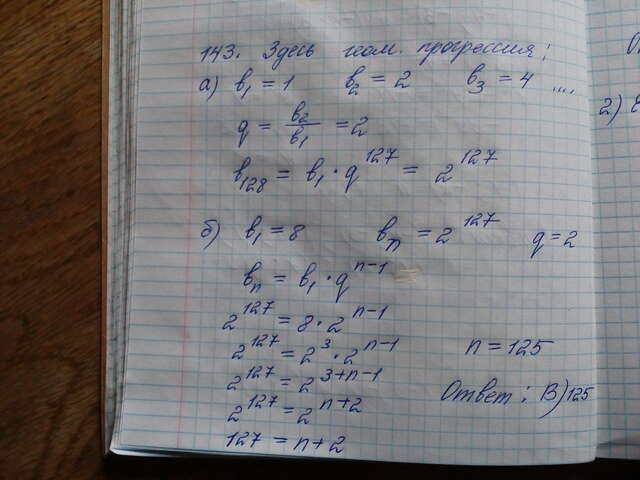 143. Здесь геом. прогрессия;
а) b₁ = 1 b₂ = 2 b₃ = 4 ....
q = b₂/b₁ = 2
b₁₂₈ = b₁ · q¹²⁷ = 2¹²⁷
б) b₁ = 8 bₙ = 2¹²⁷ q = 2
bₙ = b₁ · qⁿ⁻¹
2¹²⁷ = 8 · 2ⁿ⁻¹
2¹²⁷ = 2³ · 2ⁿ⁻¹ n = 125
2¹²⁷ = 2³⁺ⁿ⁻¹
2¹²⁷ = 2ⁿ⁺² Ответ: В) 125
127 = n + 2
2)